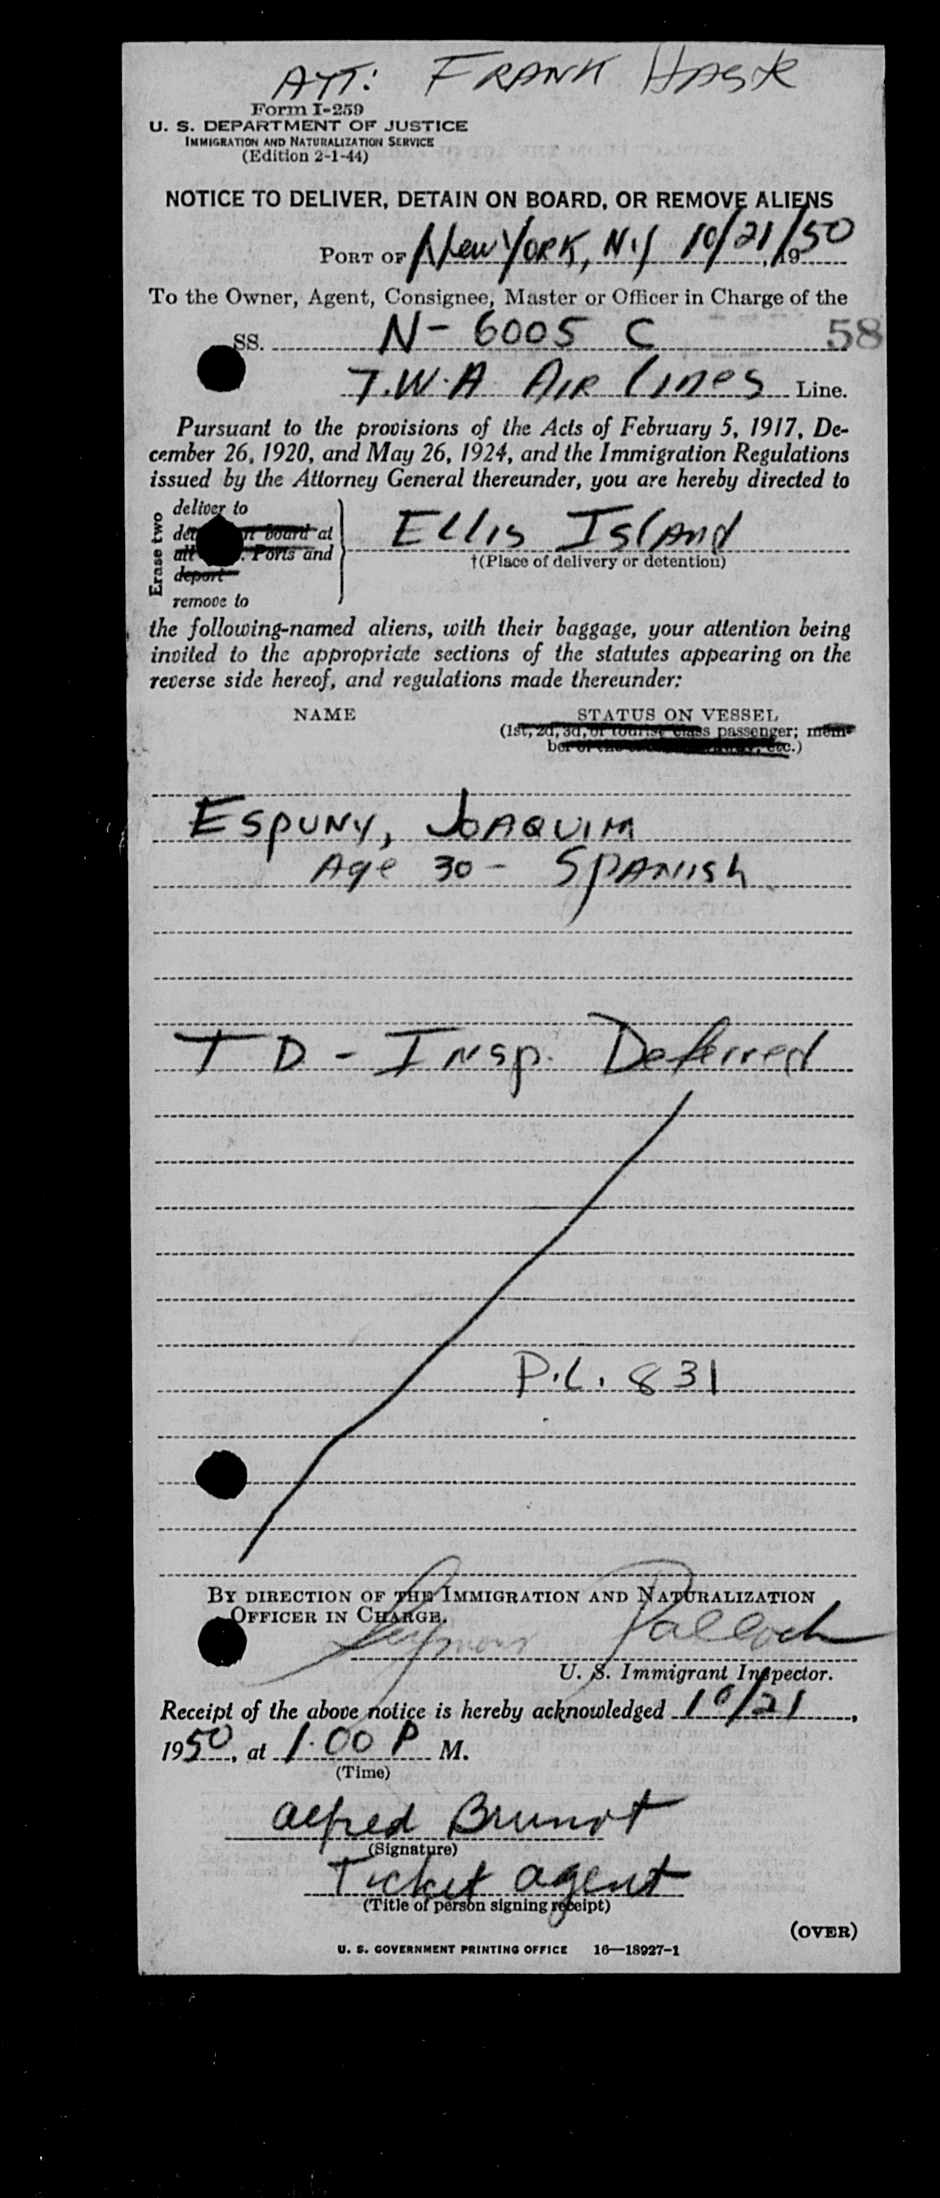 ATT: FRANK HASK
Form I-259
U. S. DEPARTMENT OF JUSTICE
IMMIGRATION AND NATURALIZATION SERVICE
(Edition 2-1-44)
NOTICE TO DELIVER, DETAIN ON BOARD, OR REMOVE ALIENS
PORT OF New YORK, NY 10/21/, 1950
To the Owner, Agent, Consignee, Master or Officer in Charge of the
SS. N-6005 C 58
T.W.A AIR lines Line.
Pursuant to the provisions of the Acts of February 5, 1917, De-
cember 26, 1920, and May 26, 1924, and the Immigration Regulations
issued by the Attorney General thereunder, you are hereby directed to
Erase two
deliver to
board at
all Ports and
deport
remove to
Ellis Island
†(Place of delivery or detention)
the following-named aliens, with their baggage, your attention being
invited to the appropriate sections of the statutes appearing on the
reverse side hereof, and regulations made thereunder:
NAME STATUS ON VESSEL
(1st, 2d, 3d, or tourist class passenger; mem-
ber of the etc.)
ESPUNY, JOAQUIM
Age 30 - SPANISh
T D - Insp. Deferred
P.L. 831
BY DIRECTION OF THE IMMIGRATION AND NATURALIZATION
OFFICER IN CHARGE.
Seymour Pallock
U. S. Immigrant Inspector.
Receipt of the above notice is hereby acknowledged 10/21,
1950, at 1.00 P M.
(Time)
Alfred Brunot
(Signature)
Ticket agent
(Title of person signing receipt)
(OVER)
U. S. GOVERNMENT PRINTING OFFICE 16—18927-1